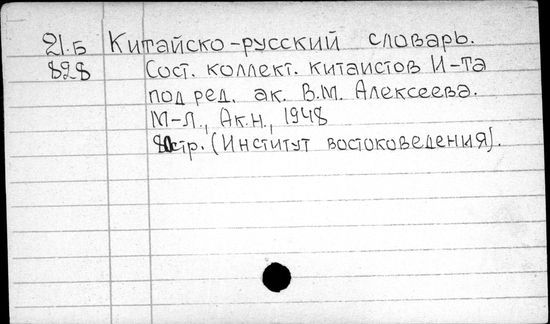 21.Б Китайско-русский словарь.
828 Сост. коллект. китаистов И-та
под ред. ак. В.М. Алексеева.
М-Л., Ак.н., 1948
80стр. (Институт востоковедения).